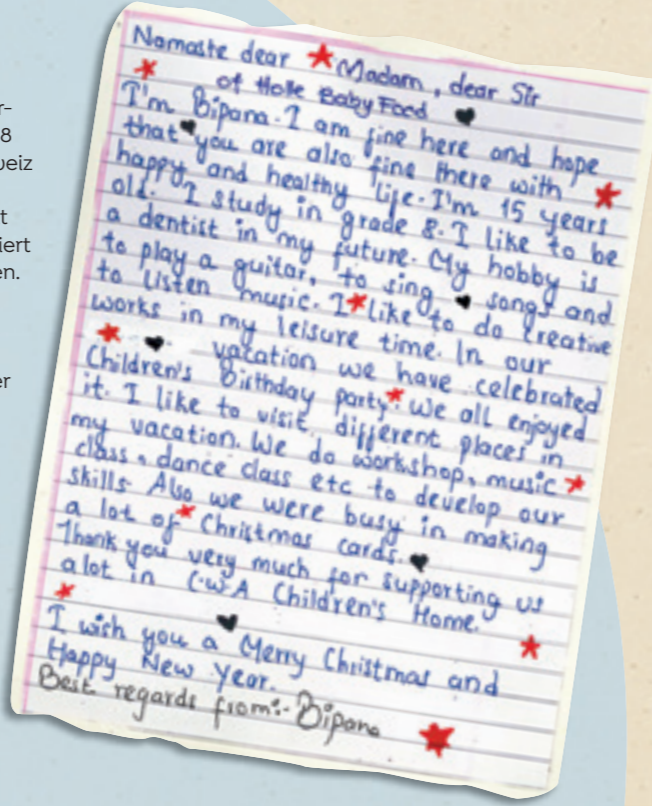 r-
8
weiz
t
iert
en.
er
Namaste dear Madam, dear Sir
of Holle Baby Food
I'm Bipana. I am fine here and hope
that you are also fine there with
happy and healthy life. I'm 15 years
old. I study in grade 8. I like to be
a dentist in my future. My hobby is
to play a guitar, to sing songs and
to listen music. I like to do creative
works in my leisure time. In our
vacation we have celebrated
Children's Birthday party. We all enjoyed
it. I like to visit different places in
my vacation. We do workshop, music
class, dance class etc to develop our
skills. Also we were busy in making
a lot of Christmas cards.
Thank you very much for supporting us
alot in C.W.A Children's Home.
I wish you a Merry Christmas and
Happy New Year.
Best regards from:- Bipana